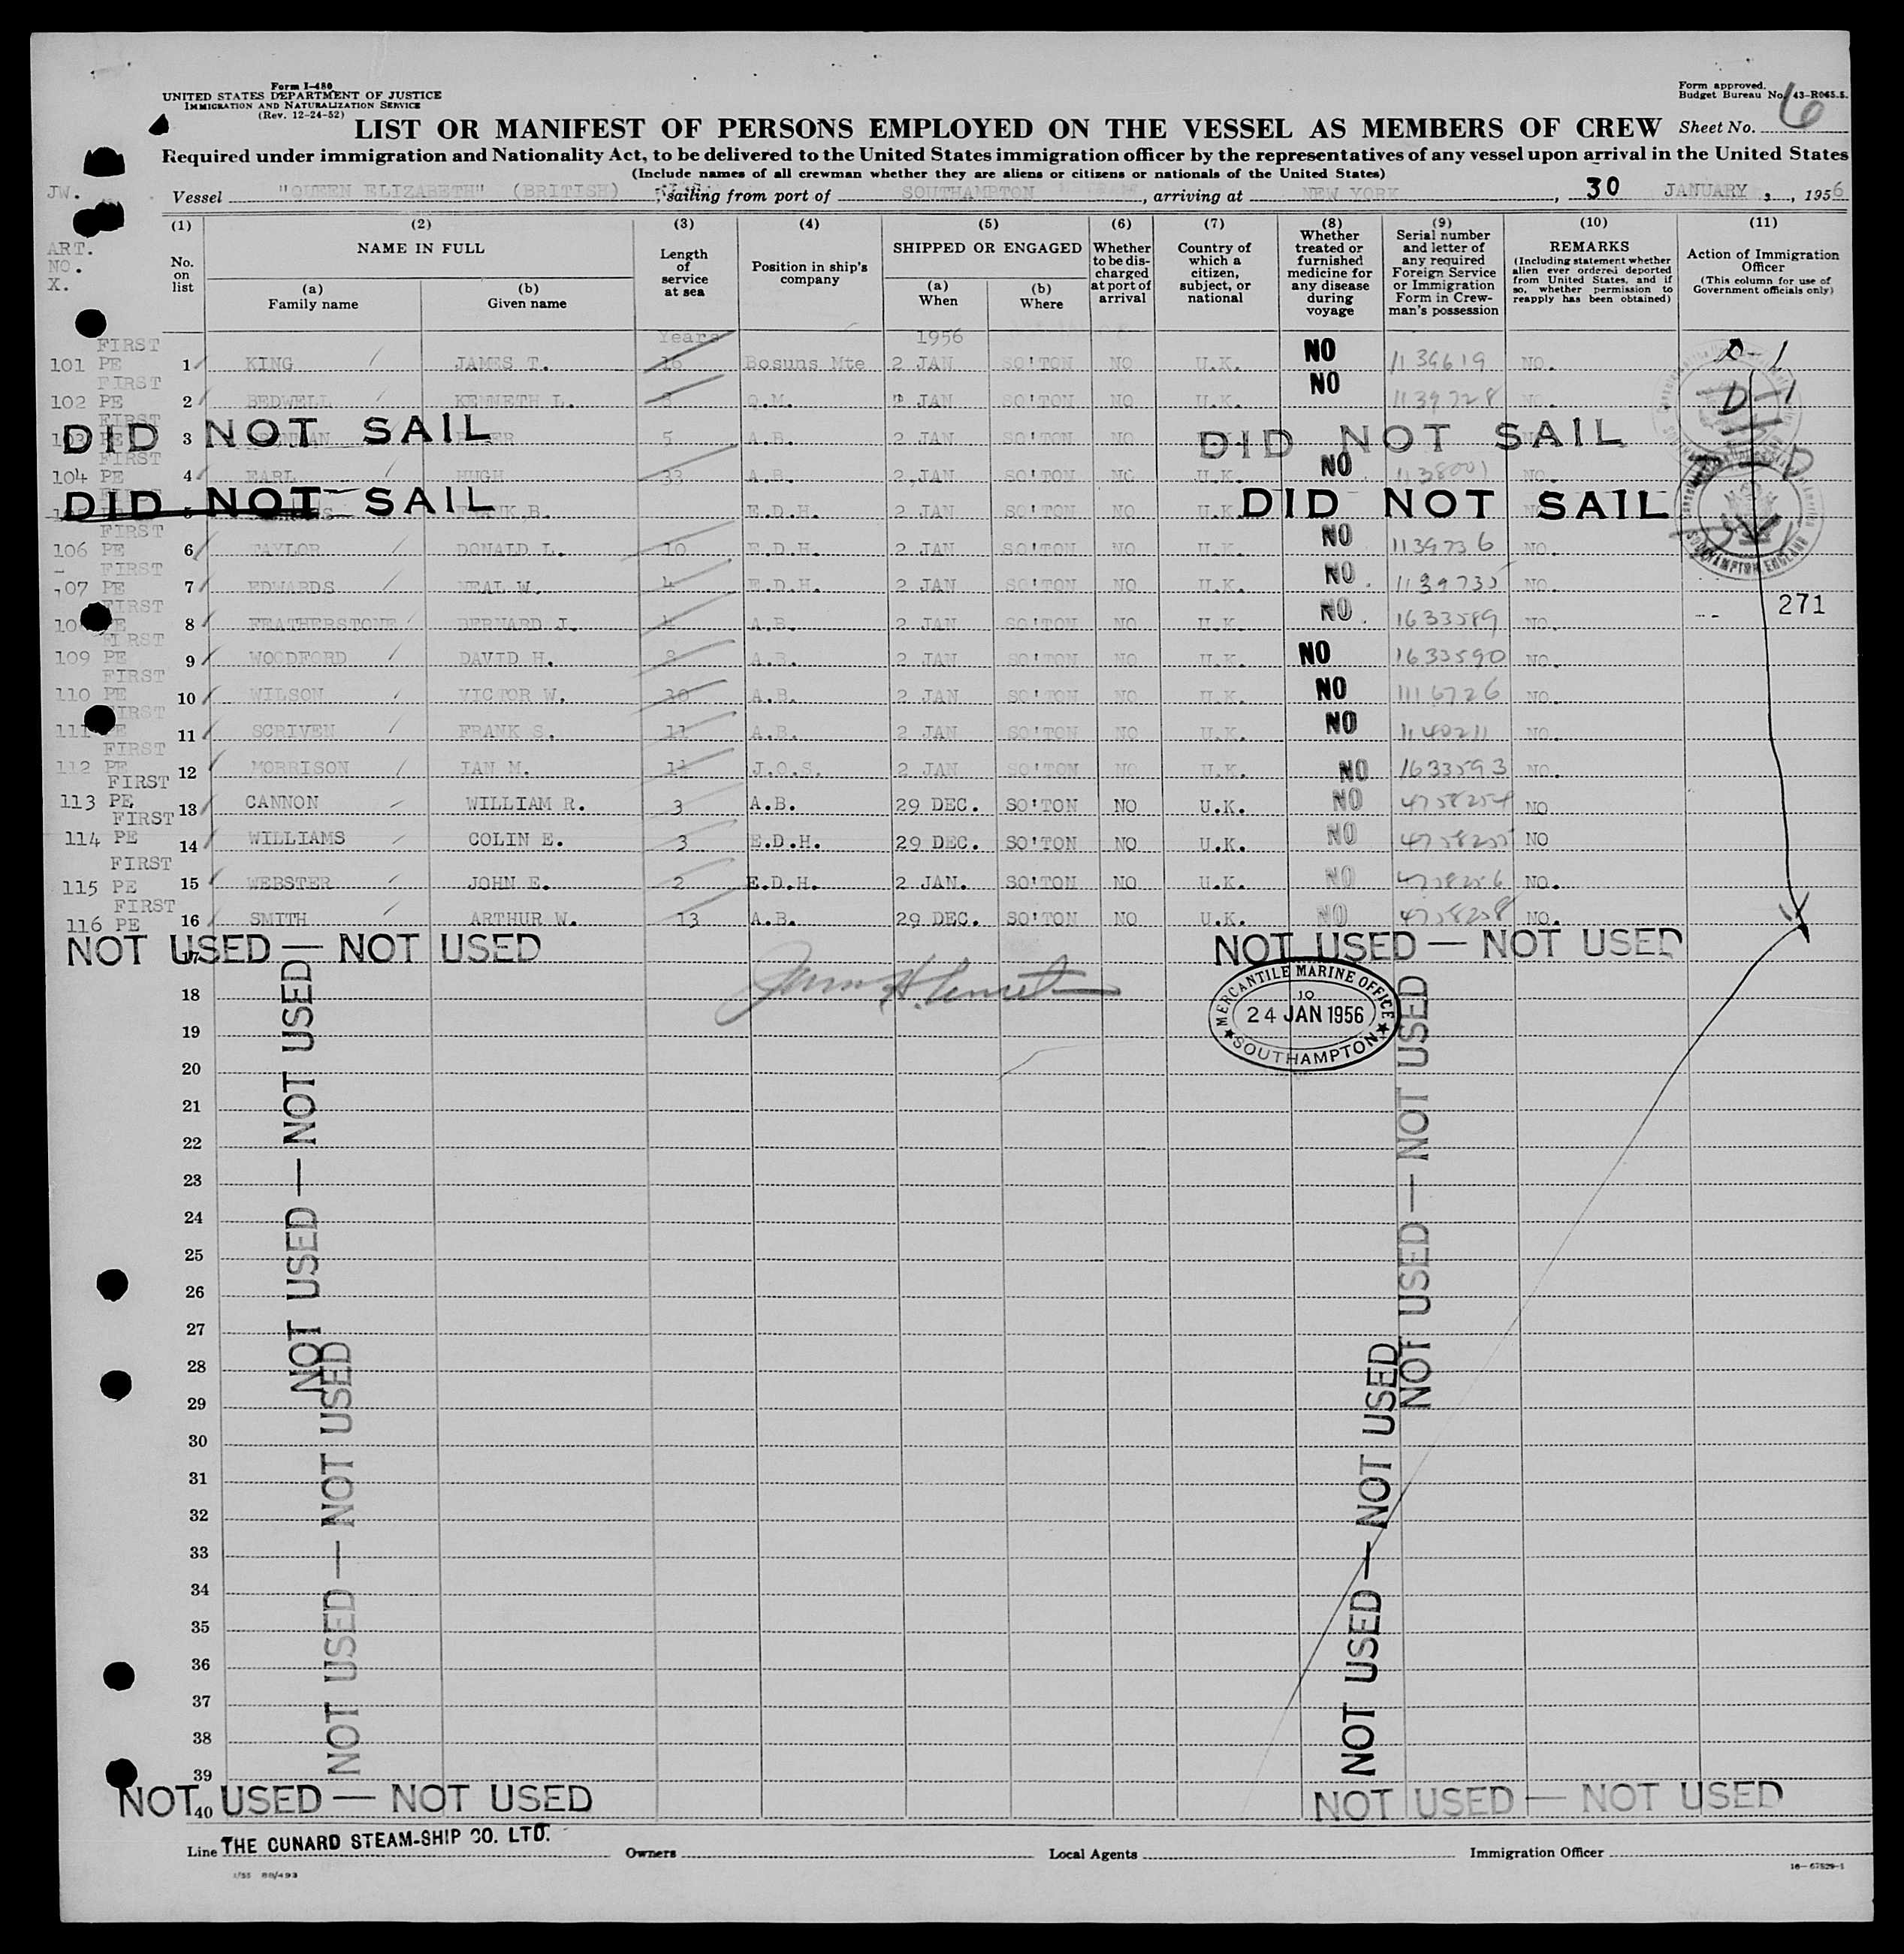 Form I-480
UNITED STATES DEPARTMENT OF JUSTICE
IMMIGRATION AND NATURALIZATION SERVICE
(Rev. 12-24-52)
Form approved.
Budget Bureau No. 43-R065.5.
LIST OR MANIFEST OF PERSONS EMPLOYED ON THE VESSEL AS MEMBERS OF CREW Sheet No. 6
Required under immigration and Nationality Act, to be delivered to the United States immigration officer by the representatives of any vessel upon arrival in the United States
(Include names of all crewman whether they are aliens or citizens or nationals of the United States)
JW. Vessel "QUEEN ELIZABETH" (BRITISH) , sailing from port of SOUTHAMPTON , arriving at NEW YORK , 30 JANUARY , 1956
ART. NO. X.
(1) No. on list
(2) NAME IN FULL (a) Family name (b) Given name
(3) Length of service at sea
(4) Position in ship's company
(5) SHIPPED OR ENGAGED (a) When (b) Where
(6) Whether to be discharged at port of arrival
(7) Country of which a citizen, subject, or national
(8) Whether treated or furnished medicine for any disease during voyage
(9) Serial number and letter of any required Foreign Service or Immigration Form in Crewman's possession
(10) REMARKS (Including statement whether alien ever ordered deported from United States, and if so, whether permission to reapply has been obtained)
(11) Action of Immigration Officer (This column for use of Government officials only)
Years 1956
FIRST
101 PE 1 KING JAMES T. 16 Bosuns Mte 2 JAN SO'TON NO U.K. NO 1139619 NO.
FIRST
102 PE 2 BEDWELL KENNETH L. Q.M. JAN SO'TON NO U.K. NO 1139728 NO.
FIRST
103 PE 3 5 A.B. 2 JAN SO'TON NO
DID NOT SAIL DID NOT SAIL
FIRST
104 PE 4 EARL HUGH 33 A.B. 2 JAN SO'TON NO U.K. NO 1138001 NO.
5 E.D.H. 2 JAN SO'TON NO U.K.
DID NOT SAIL DID NOT SAIL
FIRST
106 PE 6 TAYLOR DONALD L. 10 E.D.H. 2 JAN SO'TON NO U.K. NO 1139736 NO.
FIRST
107 PE 7 EDWARDS NEAL W. 4 E.D.H. 2 JAN SO'TON NO U.K. NO 1139735 NO.
FIRST
PE 8 FEATHERSTONE BERNARD J. A.B. 2 JAN SO'TON NO U.K. NO 1633589 NO. 271
FIRST
109 PE 9 WOODFORD DAVID H. A.B. 2 JAN SO'TON NO U.K. NO 1633590 NO.
FIRST
110 PE 10 WILSON VICTOR W. A.B. 2 JAN SO'TON NO U.K. NO 1116726 NO.
FIRST
111 PE 11 SCRIVEN FRANK S. 11 A.B. 2 JAN SO'TON NO U.K. NO 1140211 NO.
FIRST
112 PE 12 MORRISON IAN M. J.O.S. 2 JAN SO'TON NO U.K. NO 1633593 NO.
FIRST
113 PE 13 CANNON WILLIAM R. 3 A.B. 29 DEC. SO'TON NO U.K. NO 4758254 NO
FIRST
114 PE 14 WILLIAMS COLIN E. 3 E.D.H. 29 DEC. SO'TON NO U.K. NO 4758255 NO
FIRST
115 PE 15 WEBSTER JOHN E. 2 E.D.H. 2 JAN. SO'TON NO U.K. NO 4758256 NO.
FIRST
116 PE 16 SMITH ARTHUR W. 13 A.B. 29 DEC. SO'TON NO U.K. NO 4758258 NO.
NOT USED — NOT USED NOT USED — NOT USED
17
18
19
20
21
22
23
24
25
26
27
28
29
30
31
32
33
34
35
36
37
38
39
40
MERCANTILE MARINE OFFICE
10
24 JAN 1956
SOUTHAMPTON
NOT USED — NOT USED
NOT USED — NOT USED
NOT USED — NOT USED
NOT USED — NOT USED
NOT USED — NOT USED NOT USED — NOT USED
Line THE CUNARD STEAM-SHIP CO. LTD. Owners Local Agents Immigration Officer
1/55 80/493
16—67529-1